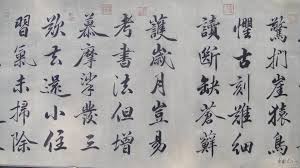 驚捫崖猿鳥
懼古刻難細
讀斷缺蒼蘚
護歲月豈易
考書法但增
慕摩挲發三
歎去還小住
習氣未掃除